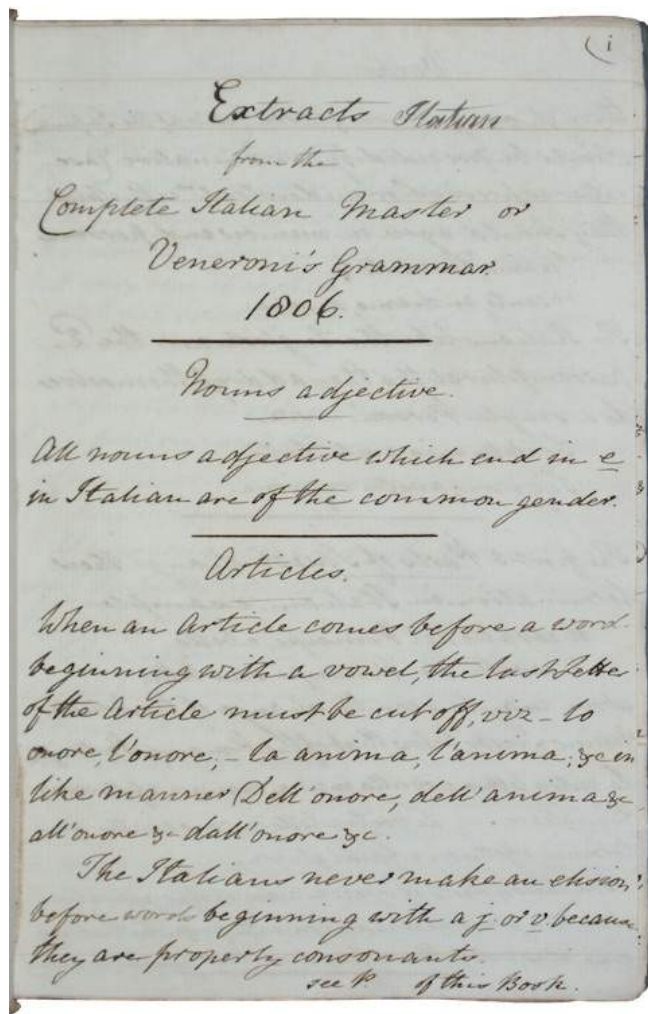 (i
Extracts Italian
from the
Complete Italian Master or
Veneroni's Grammar.
1806.
Nouns adjective.
All nouns adjective which end in e
in Italian are of the common gender.
Articles.
When an Article comes before a word
beginning with a vowel, the last letter
of the Article must be cut off, viz - lo
onore, l'onore, - la anima, l'anima, &c in
like manner Dell'onore, dell'anima &c
all'onore &c dall'onore &c.
The Italians never make an elision
before words beginning with a j. or v. because
they are properly consonants.
see P of this Book.